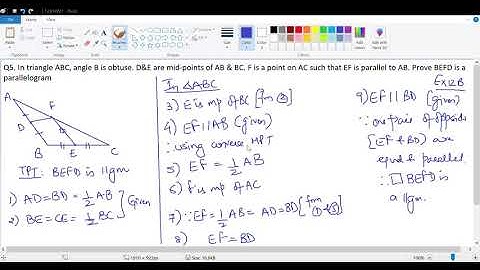 Q5. In triangle ABC, angle B is obtuse. D&E are mid-points of AB & BC. F is a point on AC such that EF is parallel to AB. Prove BEFD is a
parallelogram
A
D
F
B
E
C
TPT: BEFD is ||gm
1) AD=BD=1/2 AB
2) BE=CE=1/2 BC
} Given
In △ABC
3) E is mp of BC [frm ②]
4) EF||AB (given)
∴ using converse MPT
5) EF = 1/2 AB
6) F is mp of AC
7) ∵ EF=1/2 AB= AD=BD [frm ① & ⑤]
8) EF=BD
Ex12B
9) EF||BD (given)
∵ one pair of opposite
(EF & BD) are
equal & parallel
∴ □ BEFD is
a ||gm.